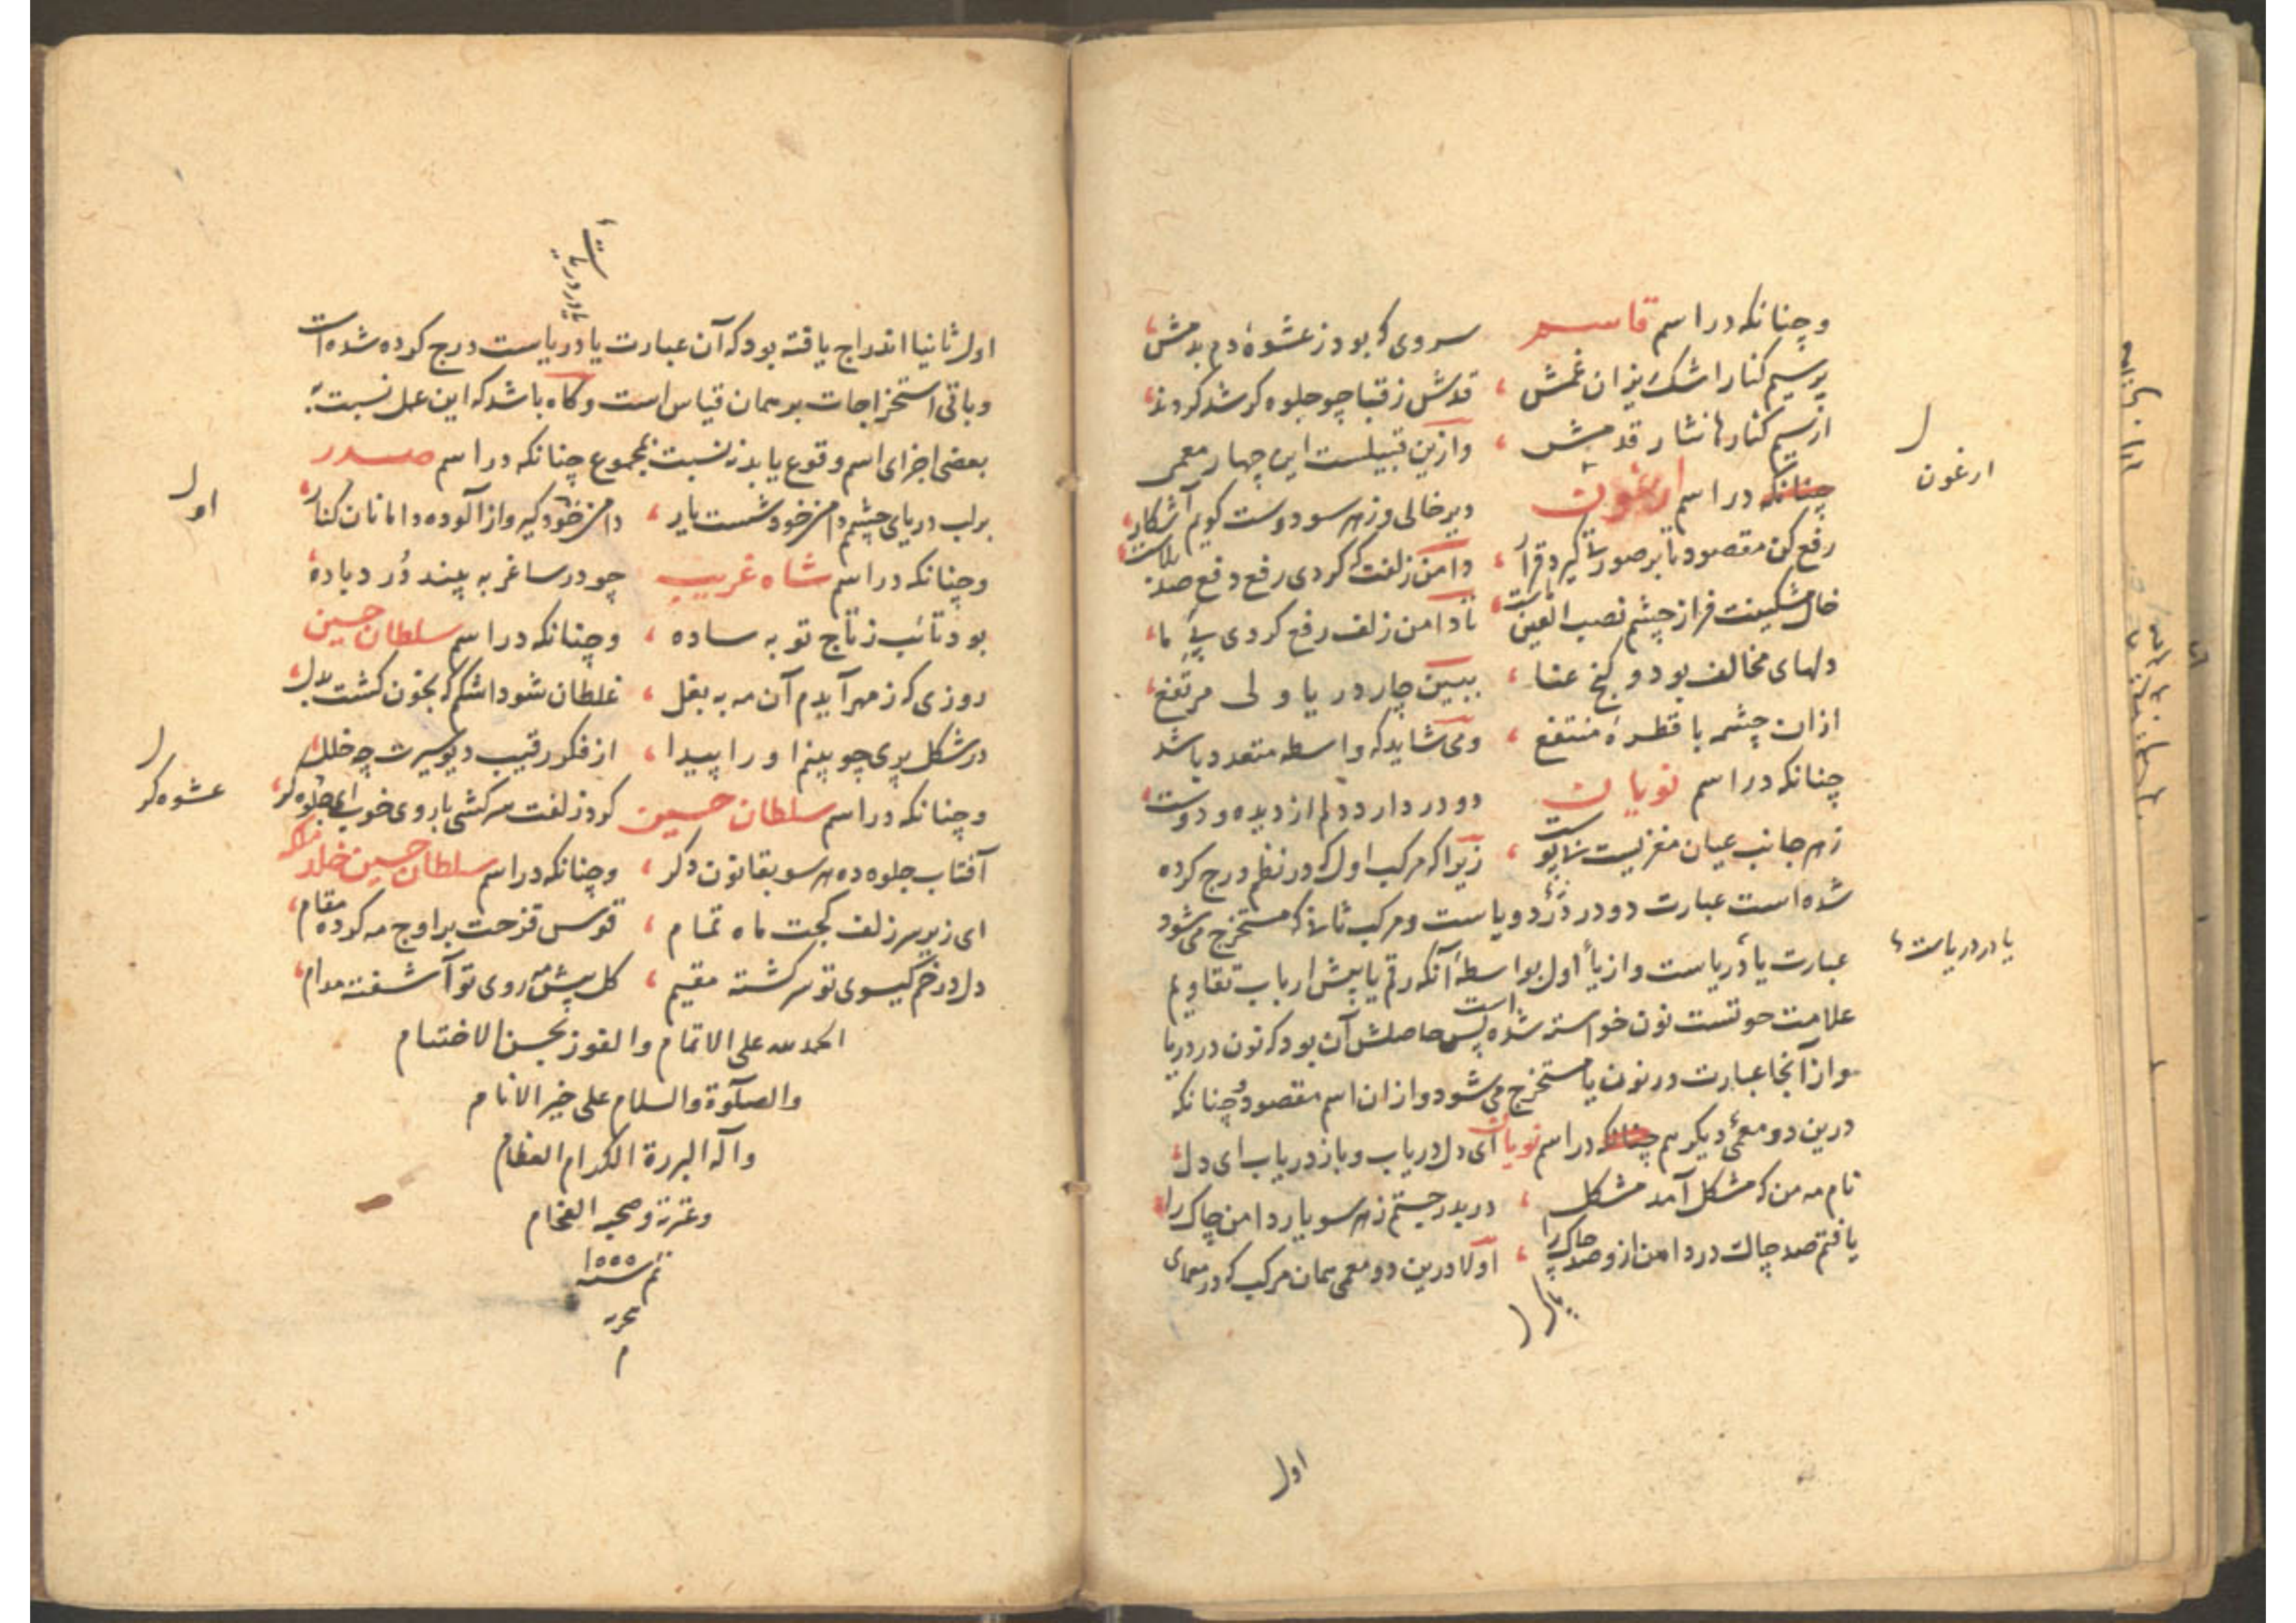 وچنانکه در اسم قاسم سروی که بود ز عشوهٔ دم بدمش
پرسیم کنار اشک ریزان غمش قدش ز قبا چو جلوه کر شد کردند
از سیم کنارها نثار قدمش وازین قبیلست این چهار معمی
چنانکه در اسم ارغون دیر خالی وز هر سو دوست کویم آشکار
رفع کن مقصود تا بر صورتی کیرد قرار دامن زلفت که کردی رفع دفع صد بلاست
خال مشکینت فراز چشم نصب العین ماست تا دامن زلف رفع کردی پی ما
دلهای مخالف بود و کنج عنا ببین چار دریا ولی مرتفع
ازان چشمه با قطرهٔ منتفع ومی شاید که واسطه متعدد باشد
چنانکه در اسم نویان دو در دارد دلم از دیده و دوست
ز هر جانب عیان مغزیست زیرا که مرکب اول که در نظم درج کرده
شده است عبارت دو در دو یاست ومرکب ثانی که مستخرج می شود
عبارت یا در یاست واز یاء اول بواسطهٔ آنکه رقم یا پیش ارباب تقاویم
علامت حوتست نون خواسته شده است پس حاصلش آن بود که نون در دریا
واز آنجا عبارت در نون یا مستخرج می شود وازان اسم مقصود چنانکه
درین دو معمی دیکر هم چنانکه در اسم نویان ای دل دریاب وباز دریاب ای دل
نام مه من که مشکل آمد مشکل در بدر جستم ز هر سو یار دامن چاک را
یافتم صد چاک در دامن ازو صد چاک را اولا درین دو معمی همان مرکب که در معمای
ارغون
یا در دریاست
اول
اول ثانیا اندراج یافته بود که آن عبارت یا در یاست درج کرده شده است
وباقی استخراجات بر همان قیاس است وکاه باشد که این عمل نسبت به
بعضی اجزای اسم وقوع یابد نه نسبت بمجموع چنانکه در اسم صدر
بر لب دریای چشمم دامن خود شست یار دامن خود کیر واز آلوده دامانان کنار
وچنانکه در اسم شاه غریب چو در ساغر به بیند درد باده
بود تائب ز تاج توبه ساده وچنانکه در اسم سلطان حسین
روزی که ز مهر آیدم آن مه به بغل غلطان شود اشکم که بخون کشت بدل
در شکل پری چو بینم او را پیدا از فکر رقیب دیو سیرت چه خلل
وچنانکه در اسم سلطان حسین کرد زلفت سرکشی با روی خوب ای جلوه کر
آفتاب جلوه ده هر سو بقانون دکر وچنانکه در اسم سلطان حسین خلد ملکه
ای زیر سر زلف کجت ماه تمام قوس قزحت بر اوج مه کرده مقام
دل در خم کیسوی تو سرکشته مقیم کل پیش مه روی تو آشفته مدام
الحمد لله علی الاتمام والفوز بحسن الاختتام
والصلوة والسلام علی خیر الانام
وآله البررة الکرام العظام
وعترته وصحبه الفخام
تم سنه ۱۵۵۵
تحریر
م
اول
عشوه کر